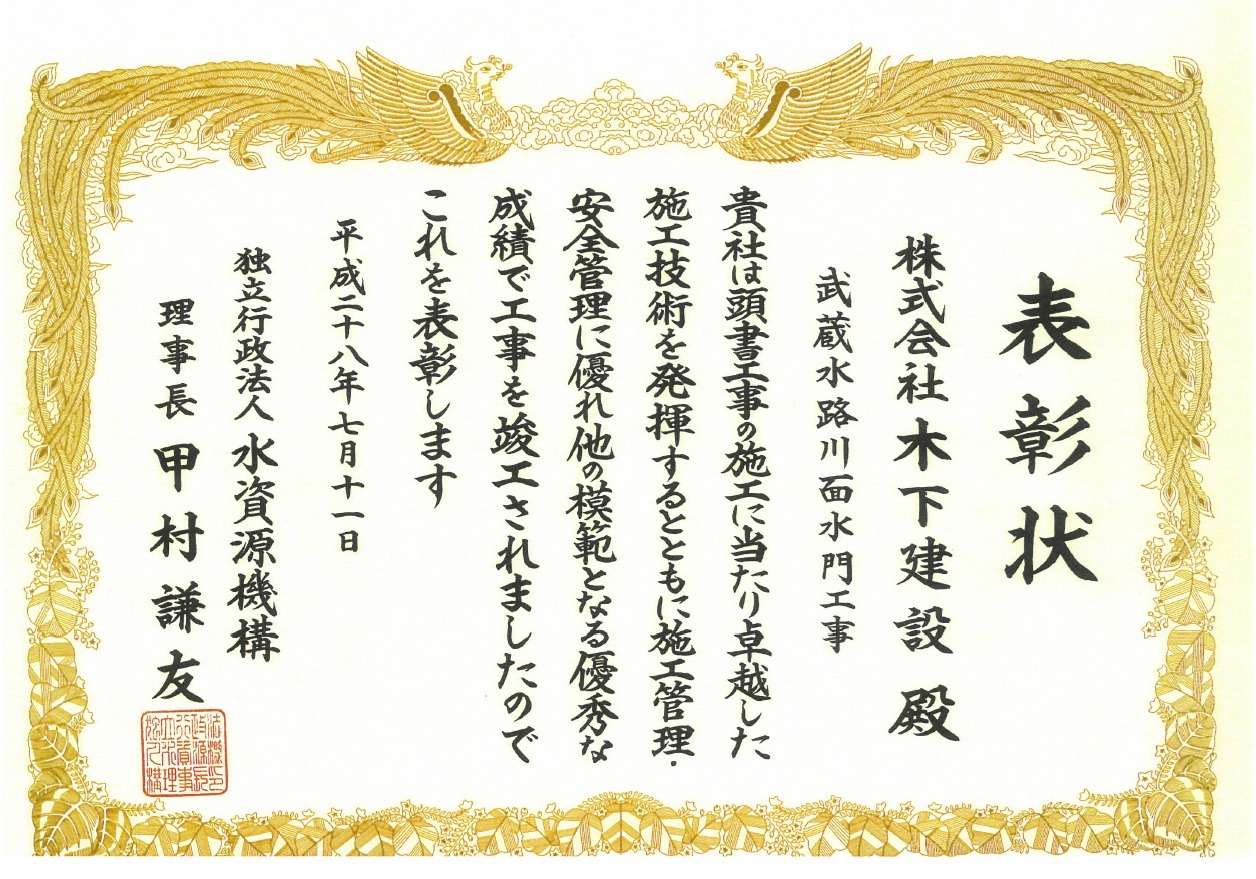 表彰状
株式会社木下建設 殿
武蔵水路川面水門工事
貴社は頭書工事の施工に当たり卓越した
施工技術を発揮するとともに施工管理・
安全管理に優れ他の模範となる優秀な
成績で工事を竣工されましたので
これを表彰します
平成二十八年七月十一日
独立行政法人水資源機構
理事長 甲村謙友